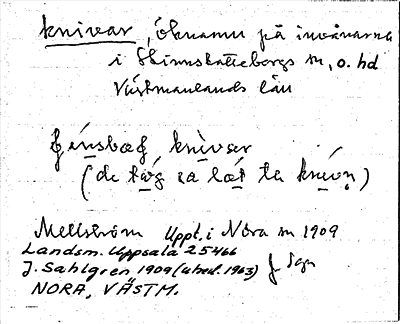 knivar, öknamn på invånarna
i Skinnskattebergs sn, o. hd
Västmanlands län
knivar
(de sa ta)
Mellström Uppt. i Nora sn 1909
Landsm. Uppsala 25466
J. Sahlgren 1909 (utarb. 1963)
NORA, VÄSTM.